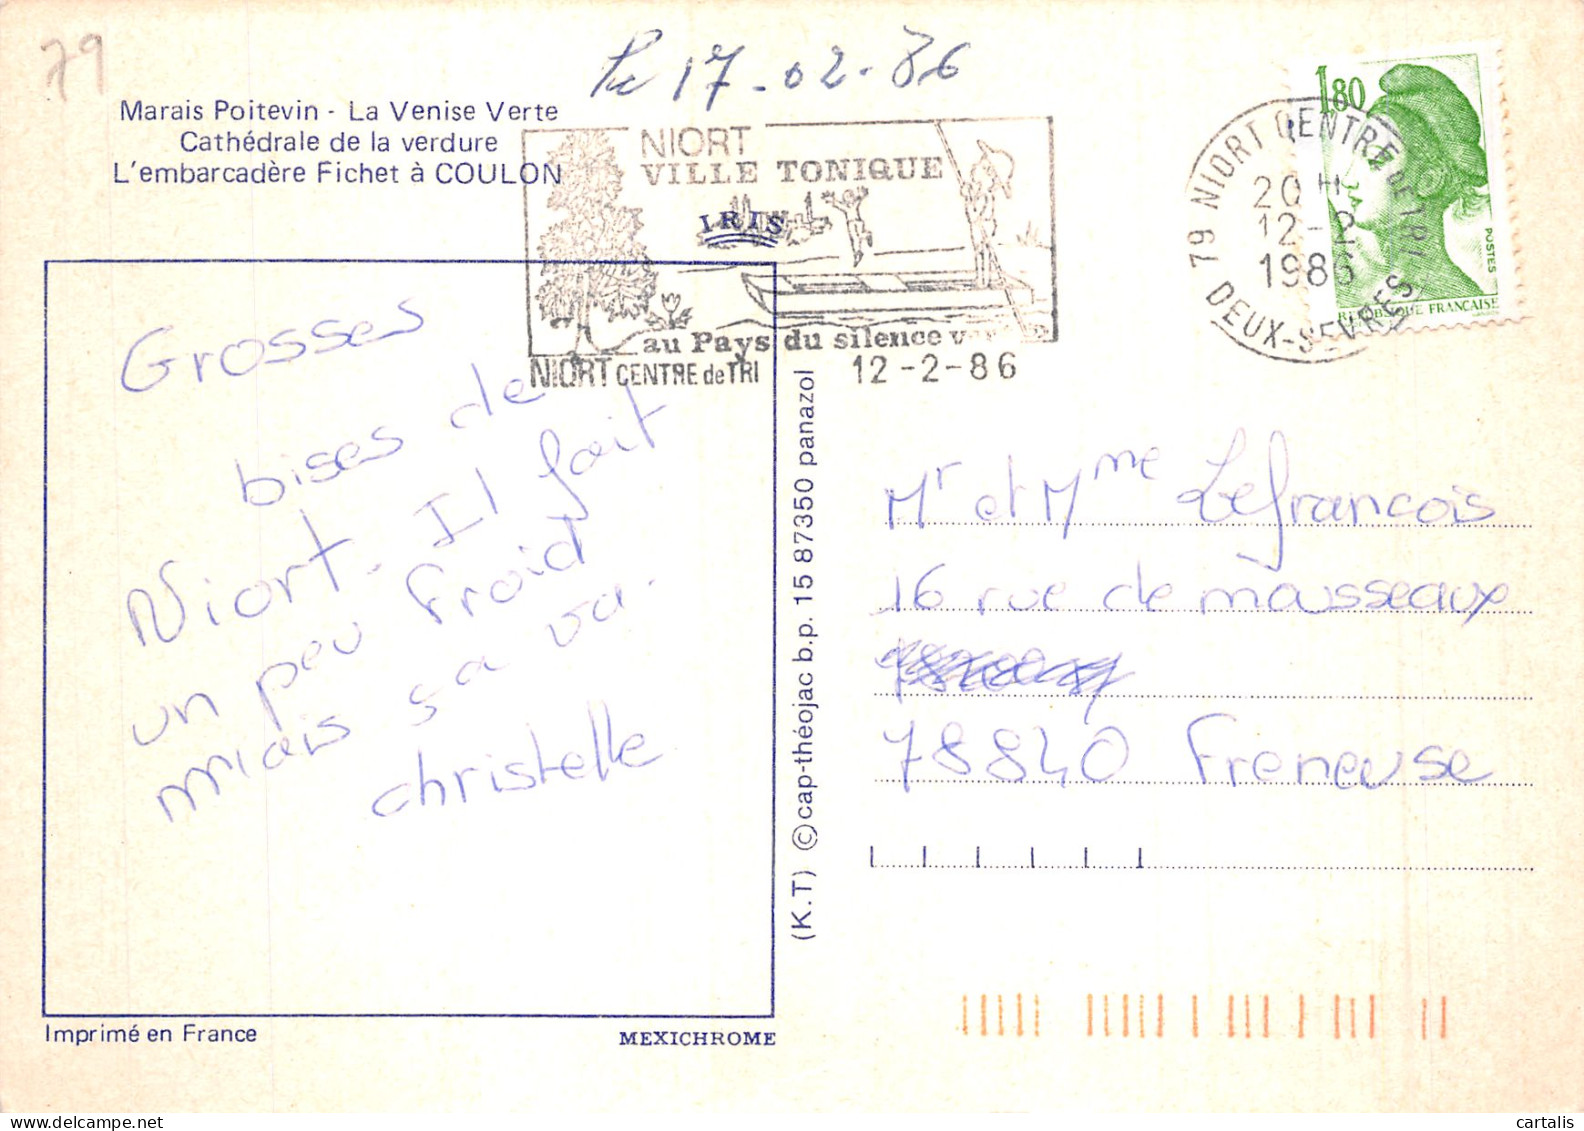 79
Pu 17-02-86
Marais Poitevin - La Venise Verte
Cathédrale de la verdure
L'embarcadère Fichet à COULON
NIORT
VILLE TONIQUE
IRIS
au Pays du silence
NIORT CENTRE de TRI
12-2-86
79 NIORT CENTRE DE TRI
20H
12-2
1986
DEUX-SEVRES
1,80
POSTES
REPUBLIQUE FRANCAISE
Grosses
bises de
Niort. Il fait
un peu froid
mais sa va.
christelle
(K.T) © cap-théojac b.p. 15 87350 panazol
Mr et Mme Lefrancois
16 rue de mousseaux
78840 Freneuse
Imprimé en France
MEXICHROME
cartalis